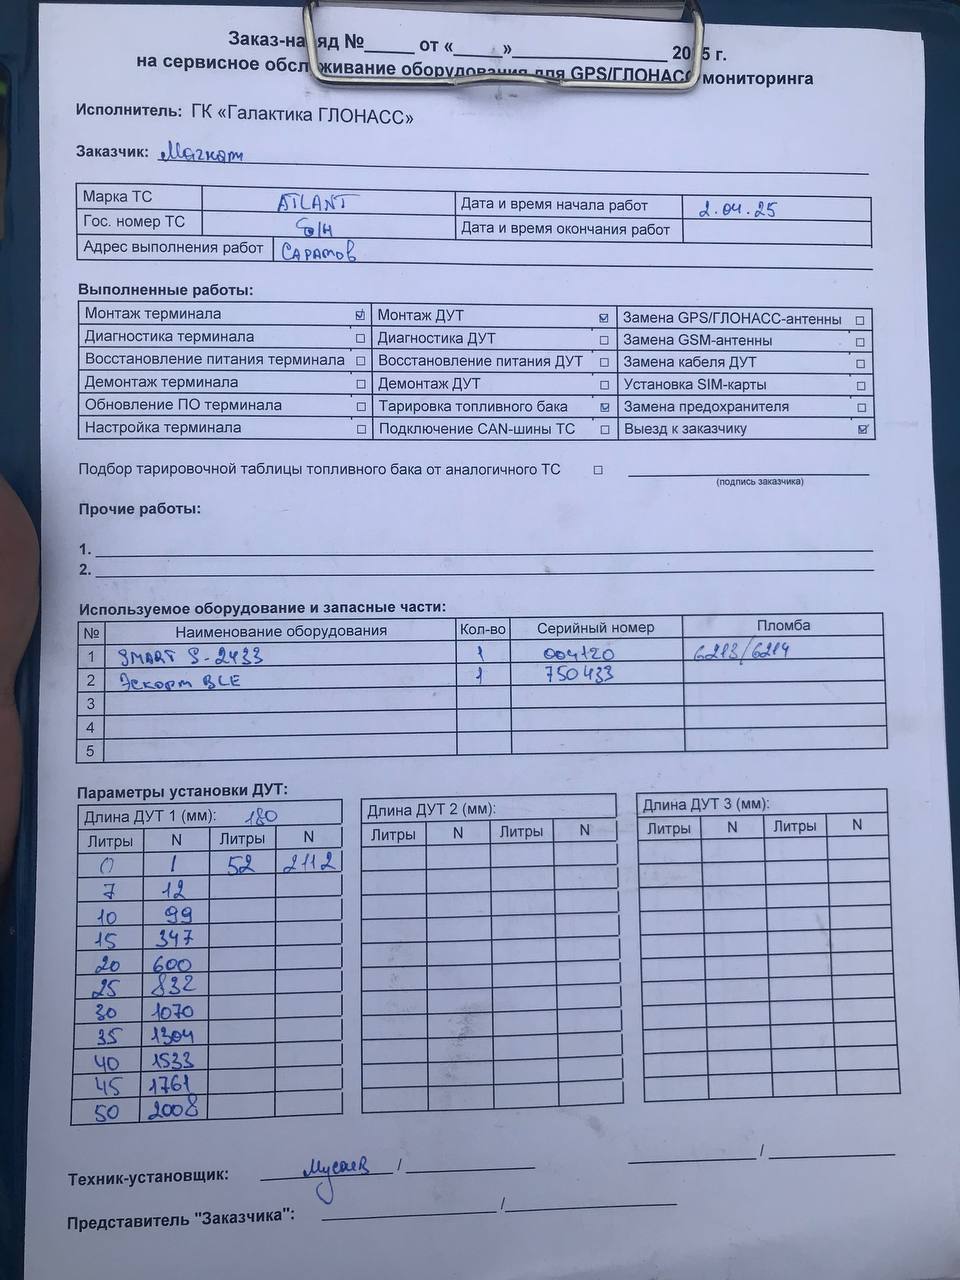 Заказ-наряд №_____ от «_____»________________ 2025 г.
на сервисное обслуживание оборудования для GPS/ГЛОНАСС мониторинга
Исполнитель: ГК «Галактика ГЛОНАСС»
Заказчик:
Марка ТС ATLANT Дата и время начала работ 2.04.25
Гос. номер ТС б/н Дата и время окончания работ
Адрес выполнения работ Саратов
Выполненные работы:
Монтаж терминала ☑ Монтаж ДУТ ☑ Замена GPS/ГЛОНАСС-антенны ☐
Диагностика терминала ☐ Диагностика ДУТ ☐ Замена GSM-антенны ☐
Восстановление питания терминала ☐ Восстановление питания ДУТ ☐ Замена кабеля ДУТ ☐
Демонтаж терминала ☐ Демонтаж ДУТ ☐ Установка SIM-карты ☐
Обновление ПО терминала ☐ Тарировка топливного бака ☑ Замена предохранителя ☐
Настройка терминала ☐ Подключение CAN-шины ТС ☐ Выезд к заказчику ☑
Подбор тарировочной таблицы топливного бака от аналогичного ТС ☐
(подпись заказчика)
Прочие работы:
1.
2.
Используемое оборудование и запасные части:
№ Наименование оборудования Кол-во Серийный номер Пломба
1 SMART S-2433 1 004120 6213/6214
2 Эскорт BLE 1 750433
3
4
5
Параметры установки ДУТ:
Длина ДУТ 1 (мм): 180 Длина ДУТ 2 (мм): Длина ДУТ 3 (мм):
Литры N Литры N Литры N Литры N Литры N Литры N
0 1 52 2112
7 12
10 99
15 347
20 600
25 832
30 1070
35 1304
40 1533
45 1761
50 2008
Техник-установщик: Мусаев / /
Представитель "Заказчика": /